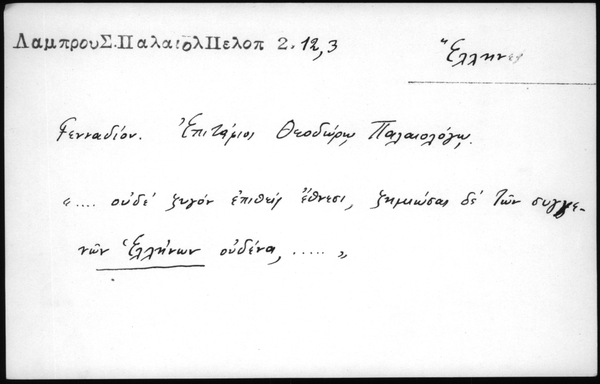 ΛαμπρουΣ.ΠαλαιολΠελοπ 2.12,3
Ἕλληνες
Γενναδίου. Ἐπιτάφιος Θεοδώρῳ Παλαιολόγῳ.
“.... οὐδέ ζυγόν ἐπιθείς ἔθνεσι, ζημιώσας δέ τῶν συγγε-
νῶν Ἑλλήνων οὐδένα, ..... „